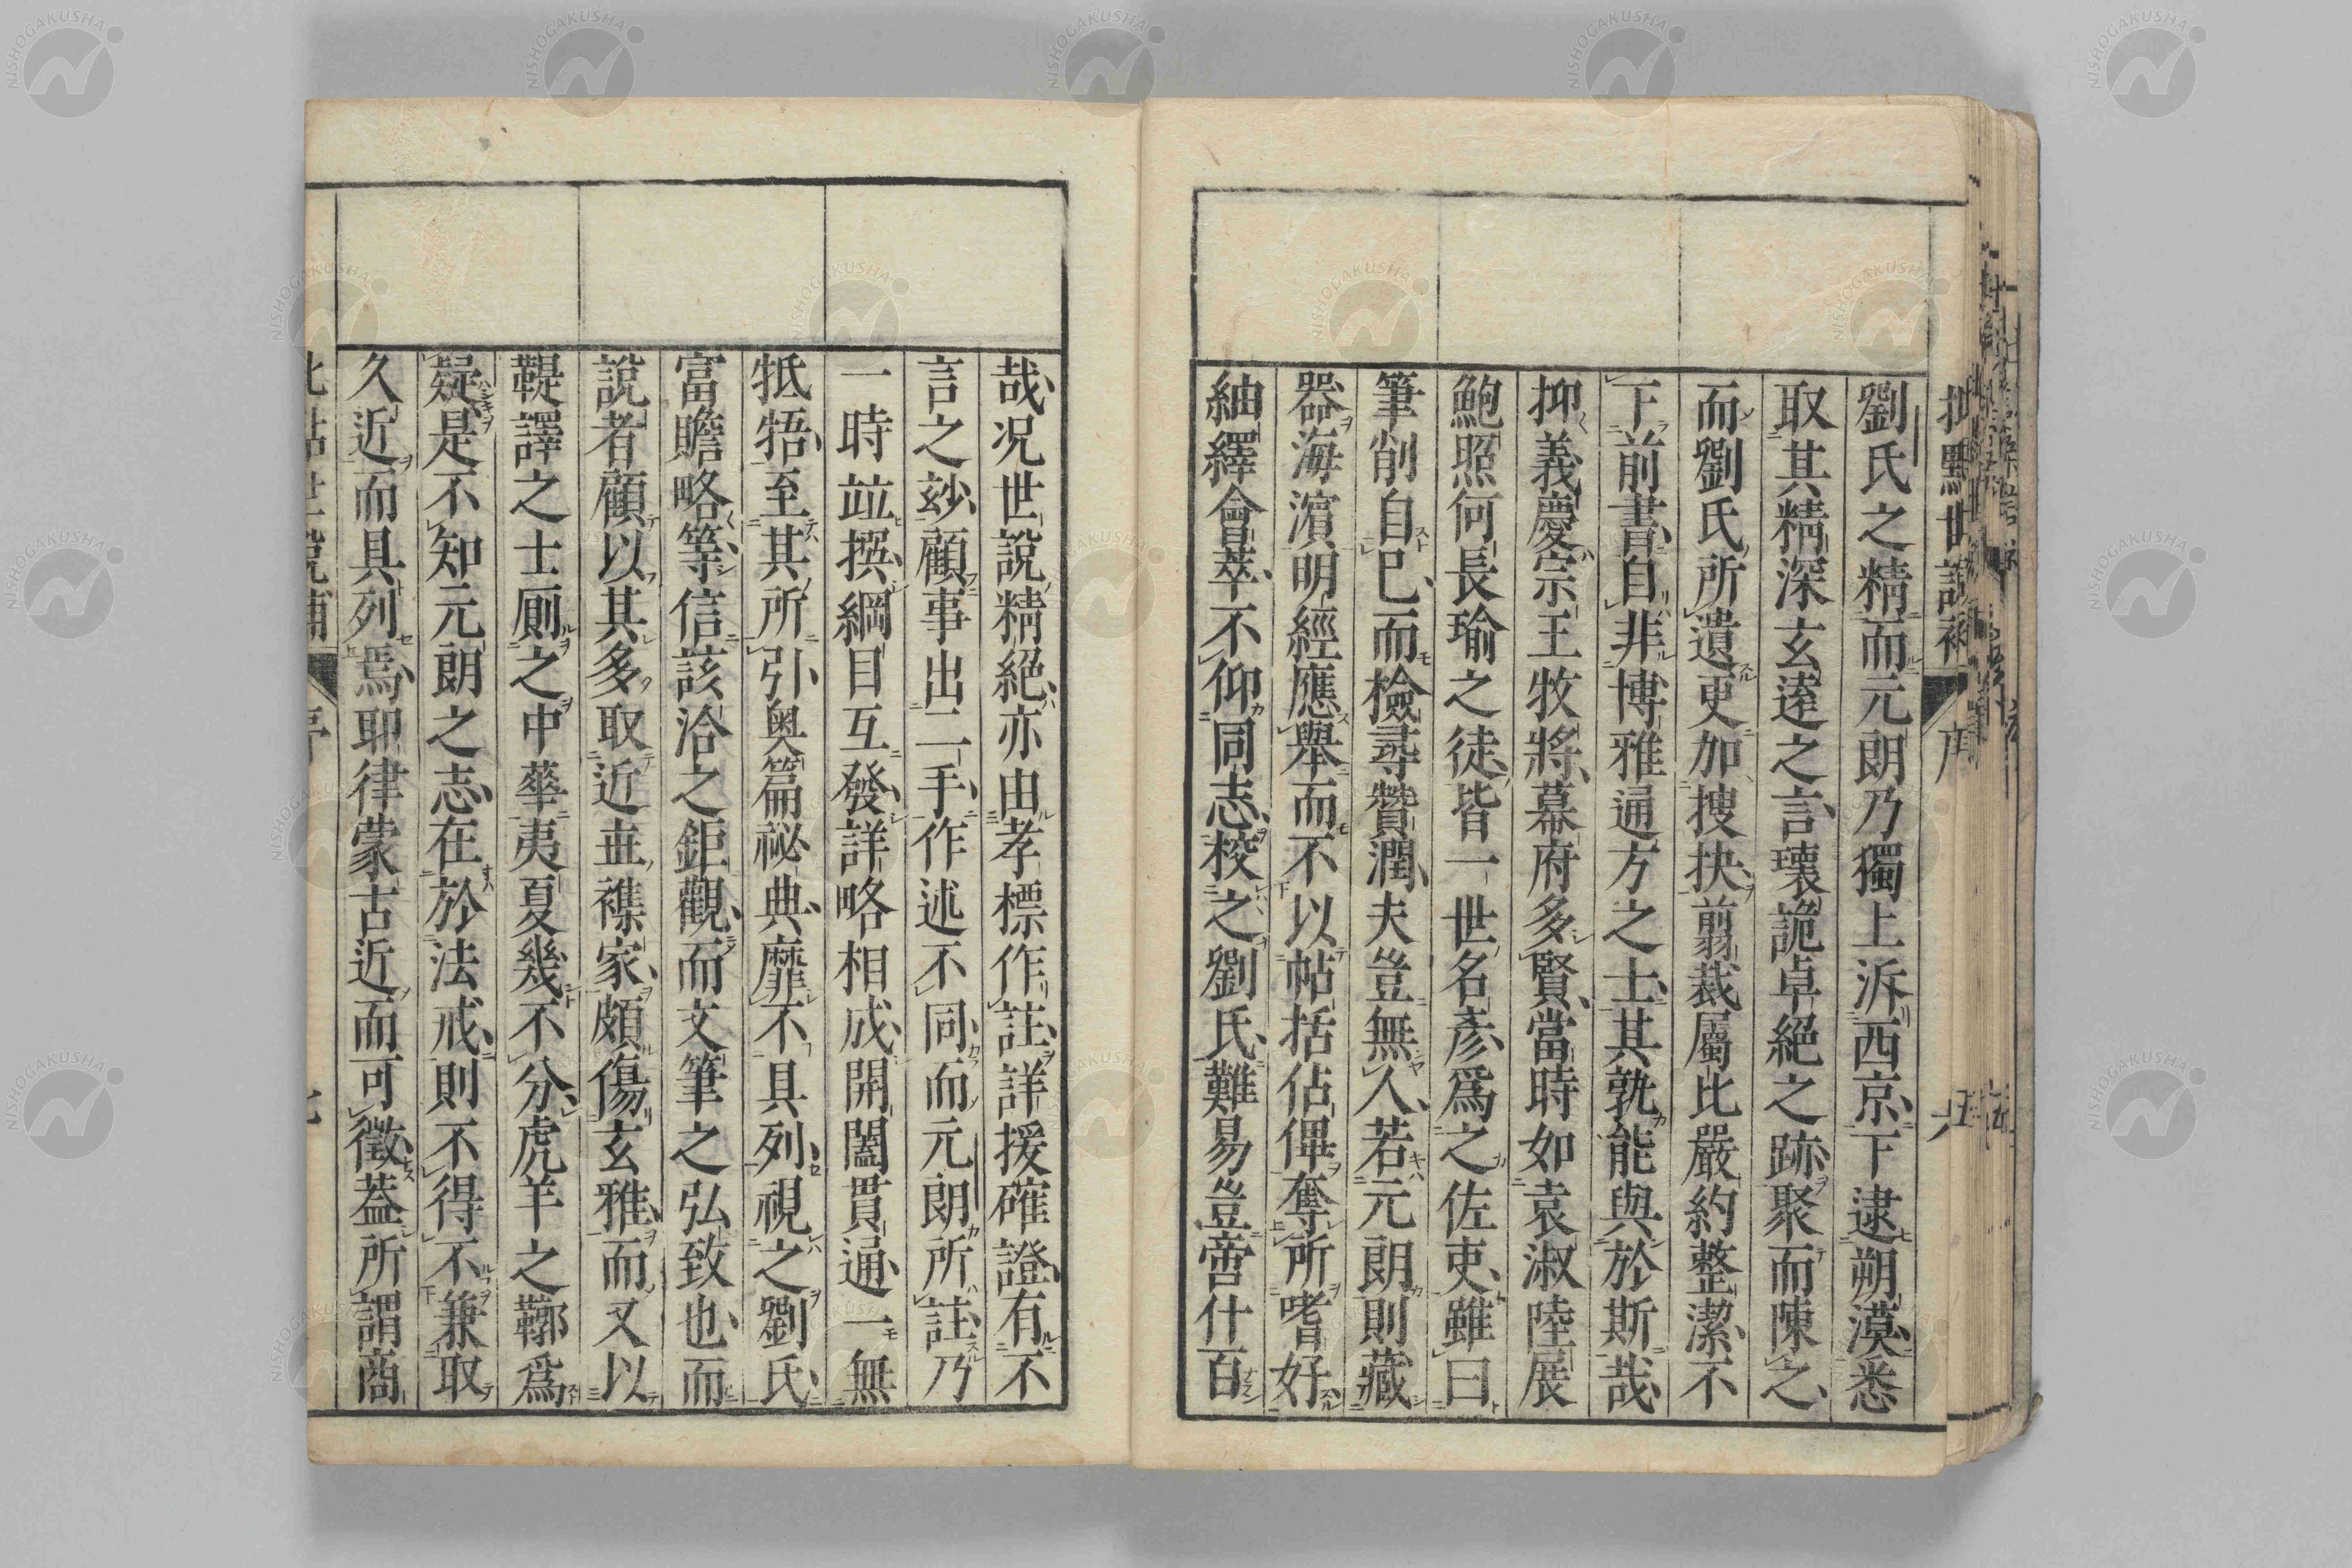 劉氏之精而元朗乃獨上泝西京下逮朔漠悉
取其精深玄遠之言瓌詭卓絕之跡聚而陳之
而劉氏所遺更加搜抉翦裁屬比嚴約整潔不
下前書自非博雅通方之士其孰能與於斯哉
抑義慶宗王牧將幕府多賢當時如袁淑陸展
鮑照何長瑜之徒皆一世名彥爲之佐吏雖曰
筆削自己而檢尋贊潤夫豈無人若元朗則藏
器海濱明經應舉而不以帖括佔僤奪所嗜好
紬繹會萃不仰同志校之劉氏難易豈啻什百
哉况世說精絕亦由孝標作註詳援確證有不
言之玅顧事出二手作述不同而元朗所註乃
一時並撰綱目互發詳略相成開闔貫通一無
牴牾至其所引奥篇祕典靡不具列視之劉氏
富贍略等信該洽之鉅觀而文筆之弘致也而
說者顧以其多取近世襍家頗傷玄雅而又以
鞮譯之士厠之中華夷夏幾不分虎羊之鞹爲
疑是不知元朗之志在於法戒則不得不兼取
久近而具列焉耶律蒙古近而可徵蓋所謂商
NISHOGAKUSHA